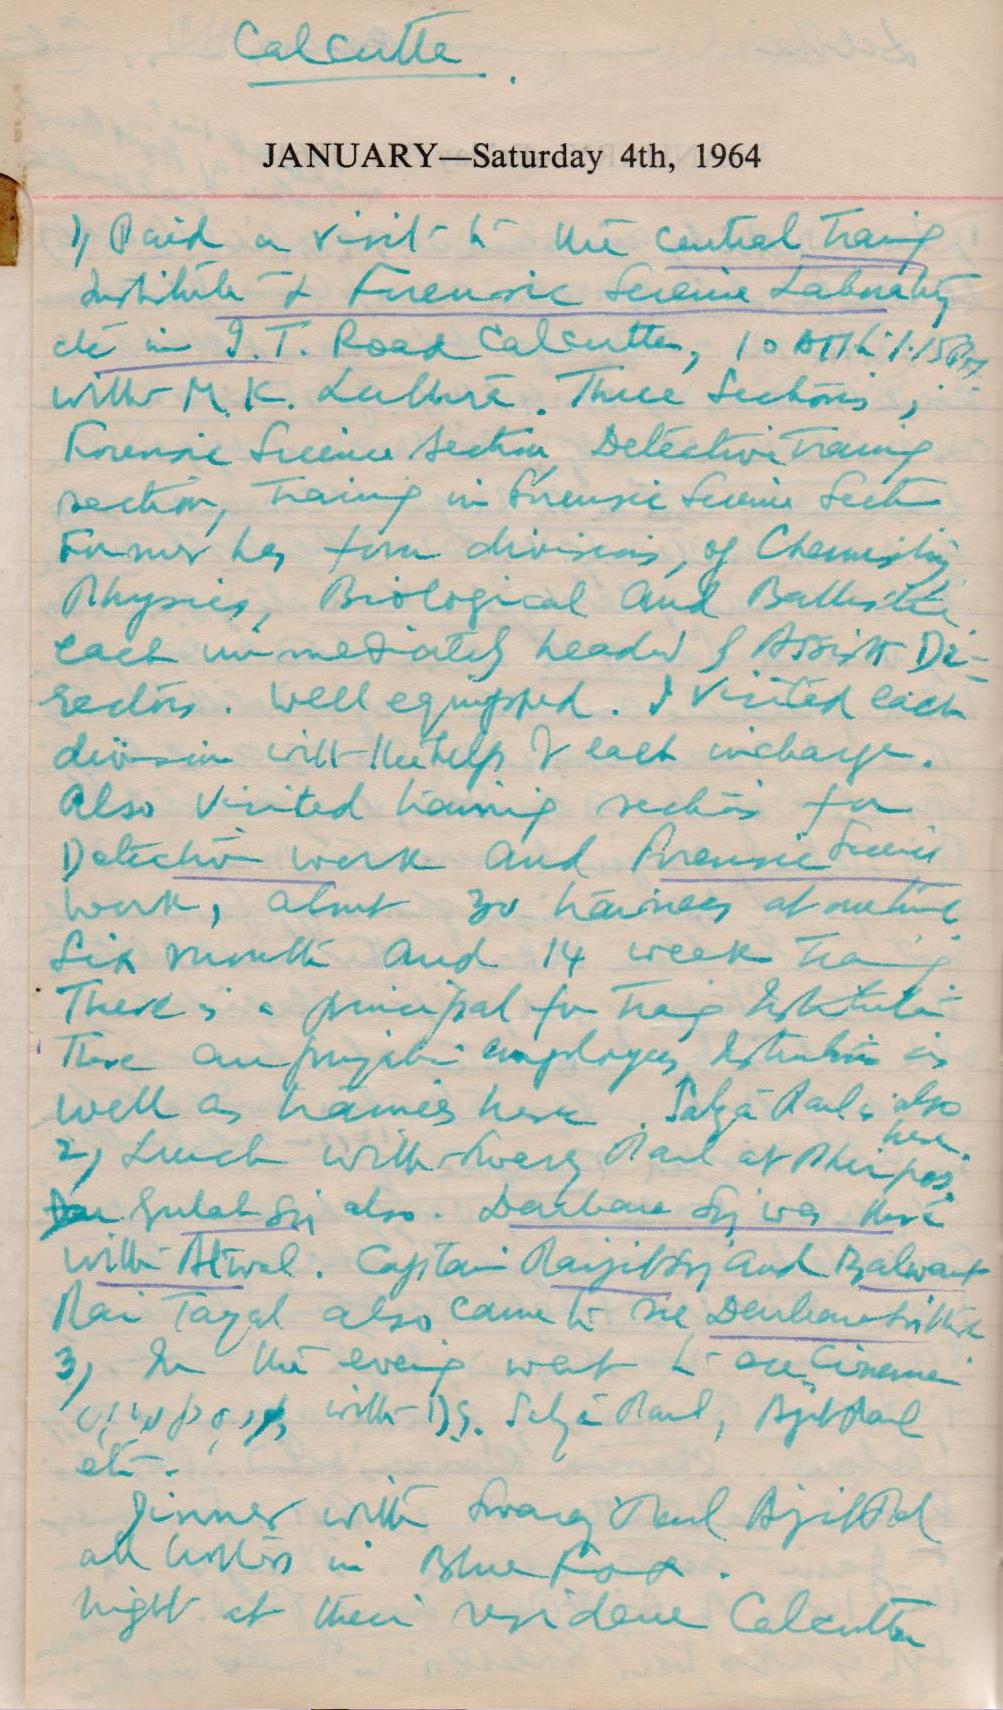 Calcutta.
JANUARY—Saturday 4th, 1964
1) Paid a visit to the Central Traing
Institute & Forensic Science Labratry
etc in J.T. Road Calcutta, 10 AM to 1.15 PM
with M.K. Three Sections,
Forensic Science Section Detective Traing
section, Traing in Forensic Science Sect
Former has four divisions, of Chemistry
Physics, Biological and Ballistic
each immediately headed by Assistt Di-
rectors. Well equipped. I visited each
division with the help of each incharge.
Also visited training sections for
Detection work and Forensic Science
work, about 30 trainees at one time
Six month and 14 week Traing
There is a principal for Traig Institution
There are punjabi employees Istitution as
well as trainees here. Satya Paul is also
here
2) Lunch with Swarg Paul at
Gulab Sing also. Darbara Sing was there
with Atwal. Captain Ranjit Sing and Balwant
Rai Tayal also came to see Darbara Sin there
3) In the evening went to see Cinema
with D.S. Satya Paul, Ajit Paul
etc.
Dinner with Swarg Paul Ajit Pal
all in Blue Fox.
Night at their residence Calcutta